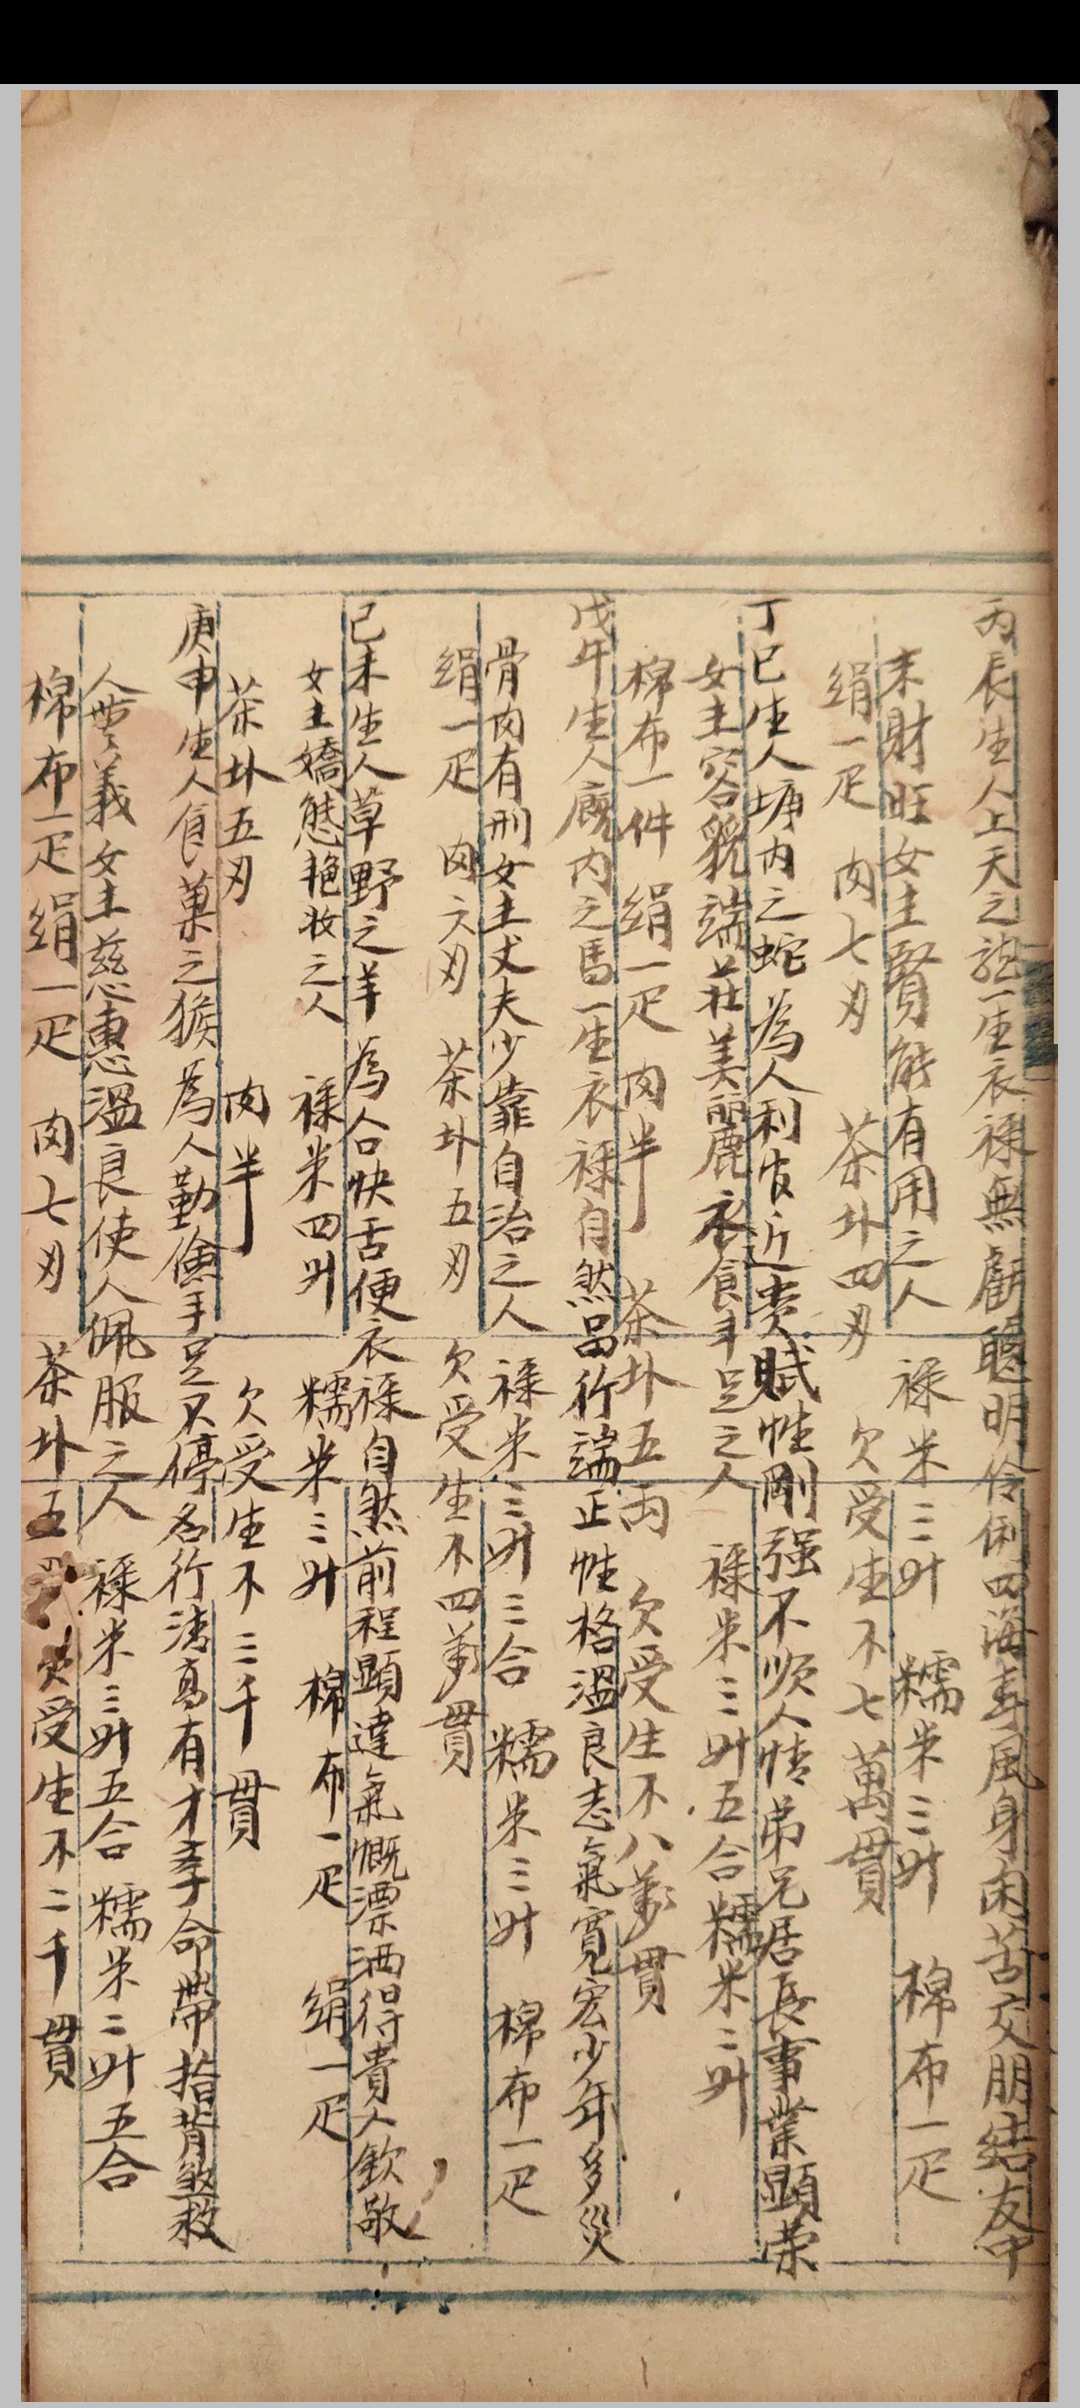 丙辰生人上天之龍一生衣祿無虧聰明伶俐四海春風身閑苦交朋結友中
末財旺女主賢能有用之人 祿米三升 糯米三升 棉布一疋
絹一疋 肉七刄 茶圤四刄 欠受生不七萬貫
丁巳生人塘内之蛇為人利官近贵賦性剛强不順人情弟兄居長事業顕荣
女主容貌端莊美麗衣食丰足之人 祿米三升五合糯米二升
棉布一件 絹一疋 肉半 茶圤五両 欠受生不八萬貫
戊午生人廐内之馬一生衣祿自然品行端正性格溫良志氣寛宏少年多災
骨肉有刑女主丈夫少靠自治之人 祿米三升三合 糯米三升 棉布一疋
絹一疋 肉六刄 茶圤五刄 欠受生不四萬貫
已未生人草野之羊為合快舌便衣祿自然前程顕達氣慨漂洒得貴人欽敬
女主嬌態艳妆之人 祿米四升 糯米三升 棉布一疋 絹一疋
茶圤五刄 肉半 欠受生不三千貫
庚申生人食菓之猴為人勤儉手足不停名行清高有才李命帶指背煞救
人無義女主慈惠溫良使人佩服之人 祿米三升五合 糯米二升五合
棉布一疋絹一疋 肉七刄 茶圤五刄 欠受生不二千貫